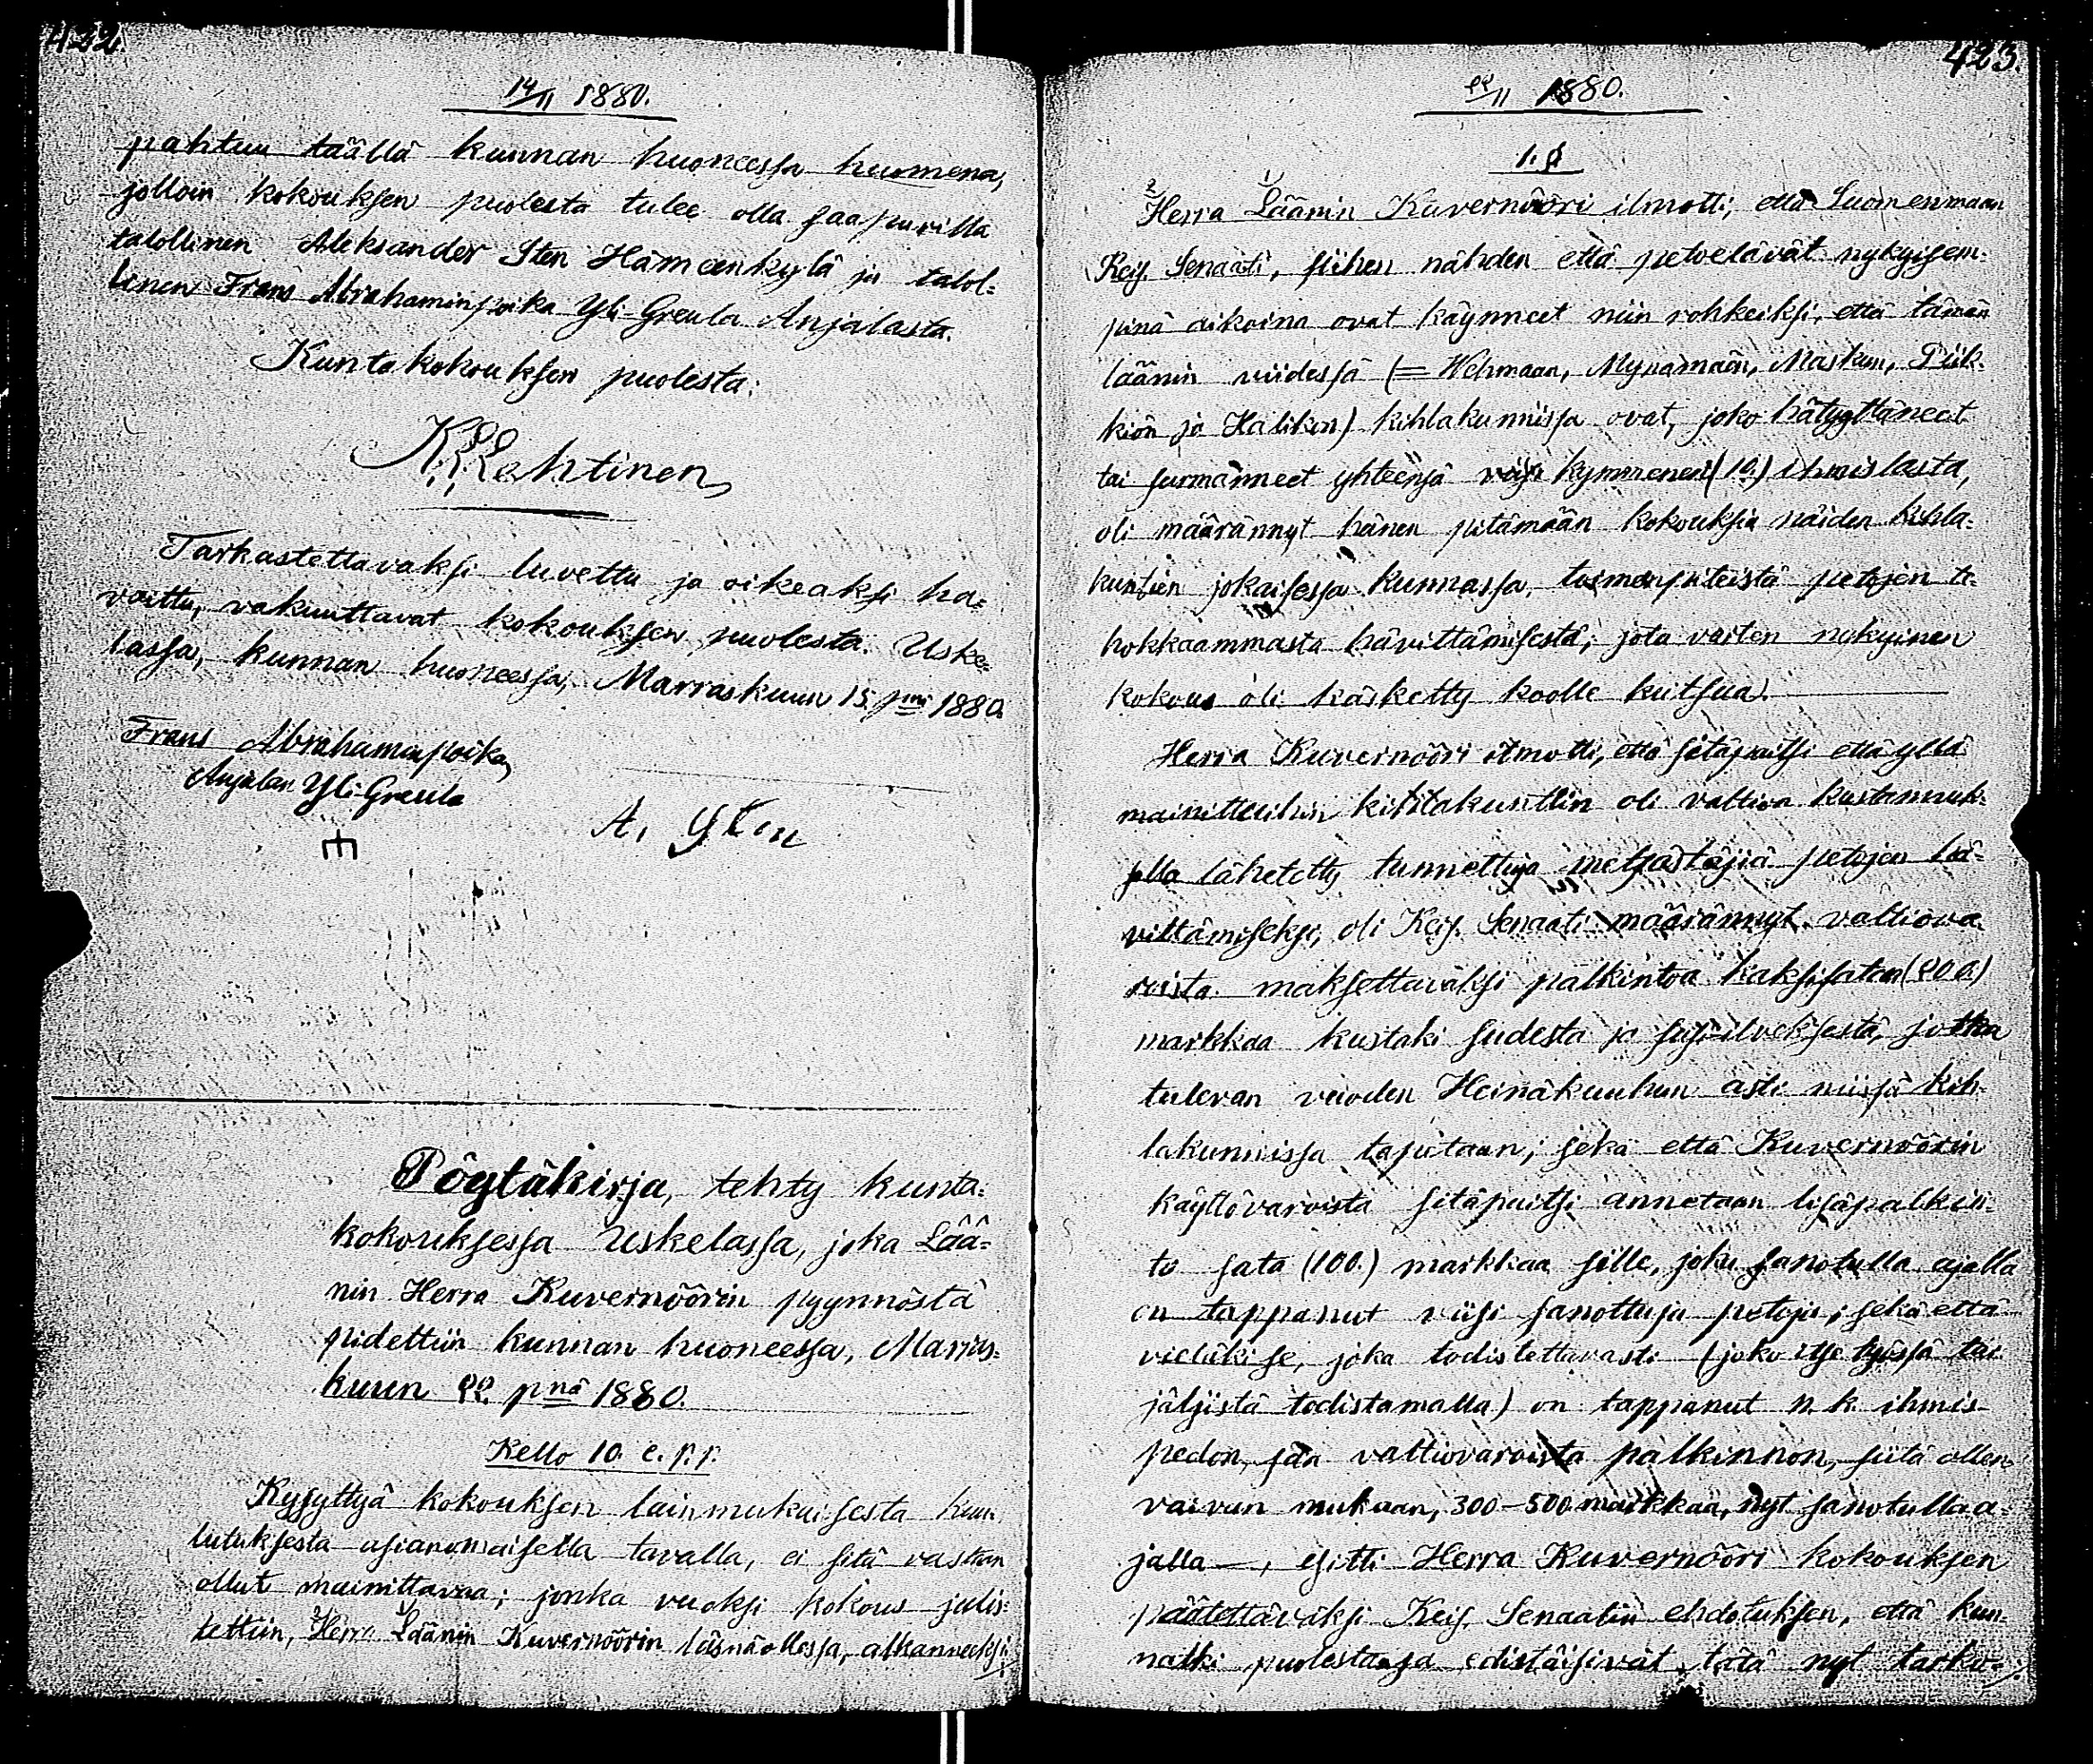 422.
14/11 1880.
pahtuu täällä kunnan huoneessa huomena,
jolloin kokouksen puolesta tulee olla saapuvilla
talollinen Aleksander Sten Hämeenkylä ja talol=
linen Frans Abrahaminpoika Yli-Greula Anjalasta.
Kuntakokouksen puolesta:
K. K. Lehtinen
Tarkastettavaksi luvettu ja oikeaksi ha=
vaittu, vakuuttavat kokouksen puolesta. Uske=
lassa, kunnan huoneessa, Marraskuun 15. pnä 1880.
Frans Abrahaminpoika
Anjalan Yli-Greula
A. Sten
Pöytäkirja, tehty kunta=
kokouksessa Uskelassa, joka Lää=
nin Herra Kuvernöörin pyynnöstä
pidettiin kunnan huoneessa, Marras=
kuun 22. pnä 1880.
Kello 10. e. p. p.
Kysyttyä kokouksen lainmukaisesta kuu
lutuksesta asianomaisella tavalla, ei sitä vastaan
ollut muistittavaa; jonka vuoksi kokous julis=
tettiin, 2 Herra 1 Läänin Kuvernöörin läsnäollessa, alkanneeksi;
423.
22/11 1880.
1. §
2 Herra 1 Läänin Kuvernööri ilmotti; että Suomenmaan
Keis. Senaati, siihen nähden että petoelävät nykyisem=
pinä aikoina ovat käynneet niin rohkeiksi, että tämän
läänin viidessä (= Wehmaan, Mynämäen, Maskun, Piik=
kiön ja Halikon) kihlakunnissa ovat, joko hätyyttäneet
tai surmanneet yhteensä kymmenen (10.) ihmislasta,
oli määrännyt hänen pitämään kokouksia näiden kihla=
kuntien jokaisessa kunnassa, toimenpiteistä petojen te=
hokkaammasta hävittämisestä; jota varten nykyinen
kokous oli käsketty koolle kutsua.
Herra Kuvernööri ilmotti, että sitäpaitsi että yllä
mainitteihin kihlakuntiin oli valtion kustannuk=
sella lähetetty tunnettuja metsästäjiä petojen hä=
vittämiseksi, oli Keis. Senaati määrännyt valtiova
roista maksettavaksi palkintoa kaksisataa (200.)
markkaa kustaki sudesta ja susi-ilveksestä, jotka
tulevan vuoden Heinäkuuhun asti niissä kih=
lakunnissa tapetaan; sekä että Kuvernöörin
käyttövaroista sitäpaitsi annetaan lisäpalkin=
to sata (100.) markkaa sille, joku sanotulla ajalla
on tappanut viisi sanottuja petoja; sekä että
vieläki se, joka todistettavasti (joko itse työssä tai
jäljistä todistamalla) on tappanut n. k. ihmis-
pedon, saa valtiovaroista palkinnon, siitä ollen
vaivan mukaan, 300-500 markkaa, nyt sanotulla a=
jalla —, esitti Herra Kuvernööri kokouksen
päätettäväksi Keis. Senaatin ehdotuksen, että kun=
natki puolestansa edistäisivät tätä nyt tarko=